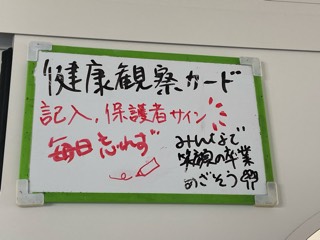 健康観察カード
記入、保護者サイン
毎日忘れず
みんなで
笑顔の卒業
めざそう